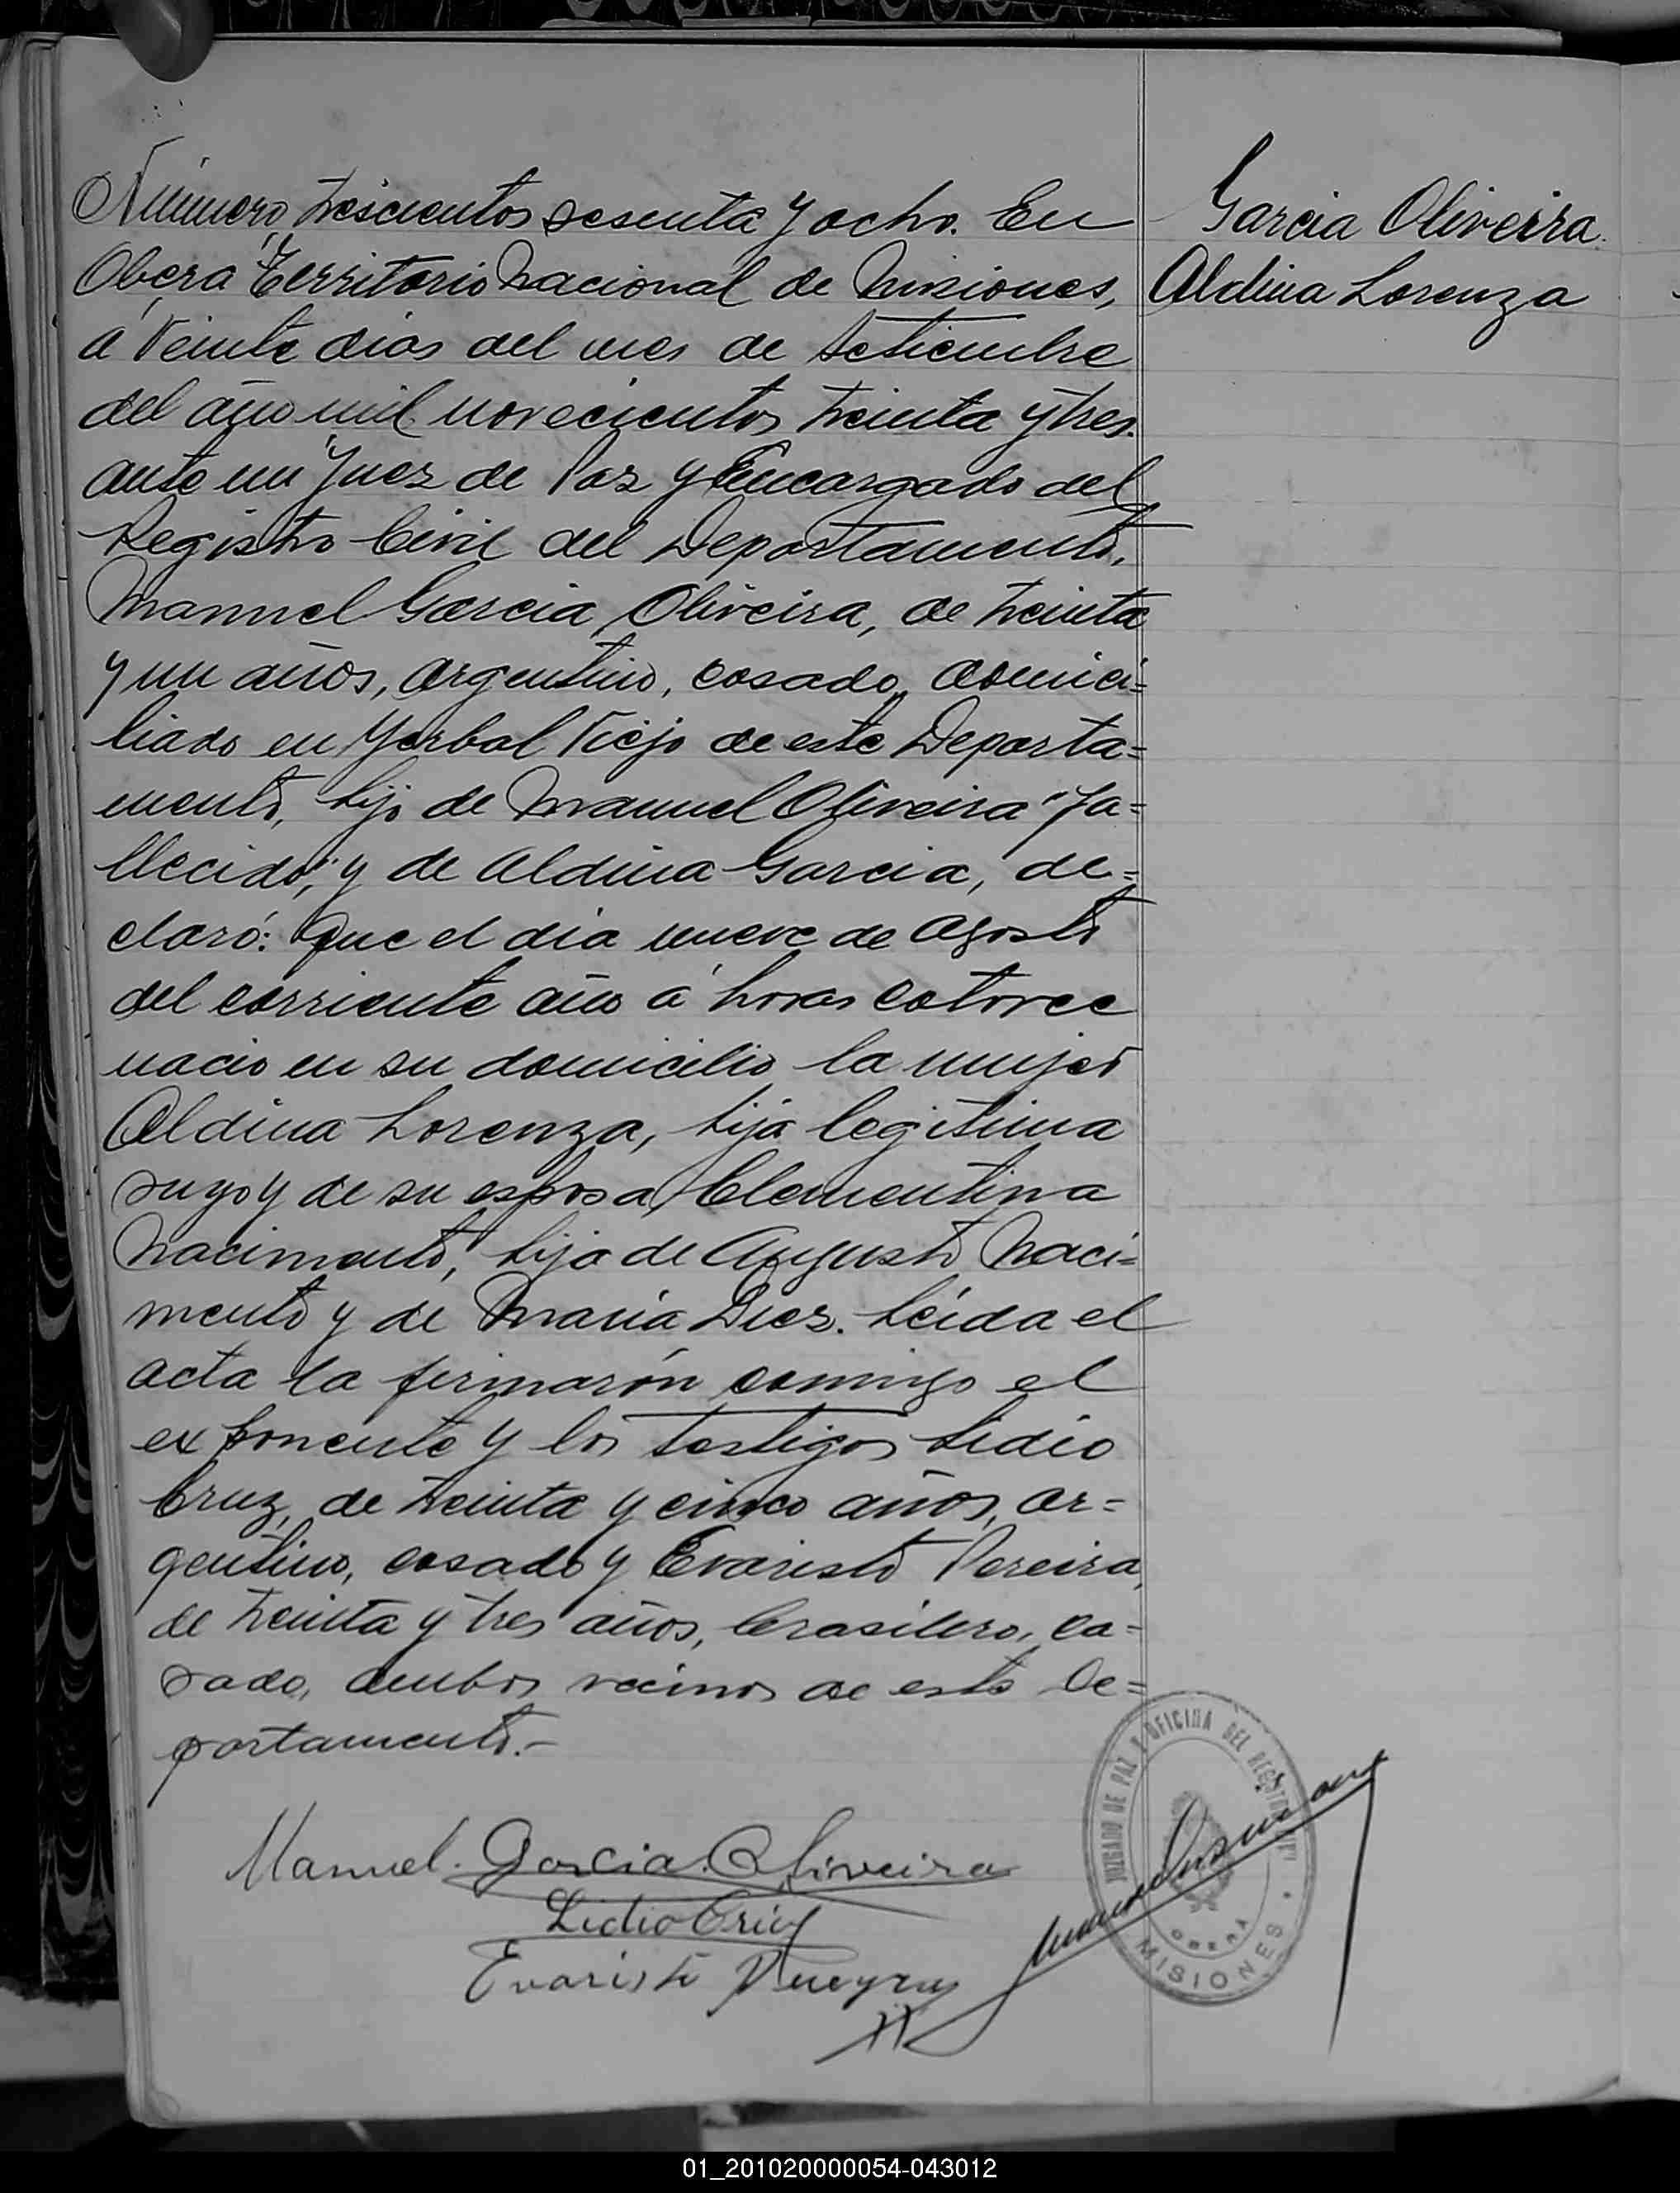 Número trescientos sesenta y ocho. En
Oberá Territorio Nacional de Misiones,
á veinte dias del mes de Setiembre
del año mil novecientos treinta y tres.
ante mi Juez de Paz y Encargado del
Registro Civil del Departamento,
Manuel Garcia Oliveira, de treinta
y un años, argentino, casado, domici=
liado en Yerbal Viejo de este Departa=
mento, hijo de Manuel Oliveira "fa=
llecido", y de Aldina Garcia, de=
claró: Que el dia nueve de Agosto
del corriente año á horas catorce
nació en su domicilio la mujer
Aldina Lorenza, hija legitima
suya y de su esposa Clementina
Nacimento, hija de Augusto Naci=
mento y de Maria Diez. Leida el
acta la firmarón comigo el
exponente y los testigos Lidio
Cruz, de treinta y cinco años, ar=
gentino, casado y Evaristo Pereira,
de treinta y tres años, brasilero, ca=
sado, ambos vecinos de este De=
partamento.-
Garcia Oliveira
Aldina Lorenza
Manuel Garcia Oliveira
Lidio Cruz
Evaristo
JUZGADO DE PAZ Y OFICINA DEL REGISTRO CIVIL
OBERA
MISIONES
01_201020000054-043012